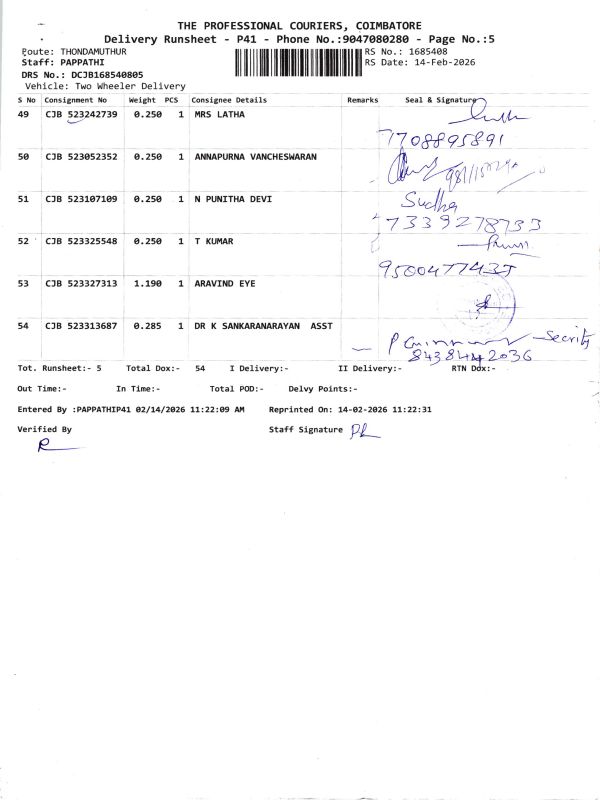 THE PROFESSIONAL COURIERS, COIMBATORE
Delivery Runsheet - P41 - Phone No.:9047080280 - Page No.:5
Route: THONDAMUTHUR
RS No.: 1685408
Staff: PAPPATHI
RS Date: 14-Feb-2026
DRS No.: DCJB168540805
Vehicle: Two Wheeler Delivery
S No Consignment No Weight PCS Consignee Details Remarks Seal & Signature
49 CJB 523242739 0.250 1 MRS LATHA
7708895891
50 CJB 523052352 0.250 1 ANNAPURNA VANCHESWARAN
51 CJB 523107109 0.250 1 N PUNITHA DEVI Sudha
7339278733
52 CJB 523325548 0.250 1 T KUMAR
9500477435
53 CJB 523327313 1.190 1 ARAVIND EYE
54 CJB 523313687 0.285 1 DR K SANKARANARAYAN ASST
Secrity
8438442036
Tot. Runsheet:- 5 Total Dox:- 54 I Delivery:- II Delivery:- RTN Dox:-
Out Time:- In Time:- Total POD:- Delvy Points:-
Entered By :PAPPATHIP41 02/14/2026 11:22:09 AM Reprinted On: 14-02-2026 11:22:31
Verified By Staff Signature